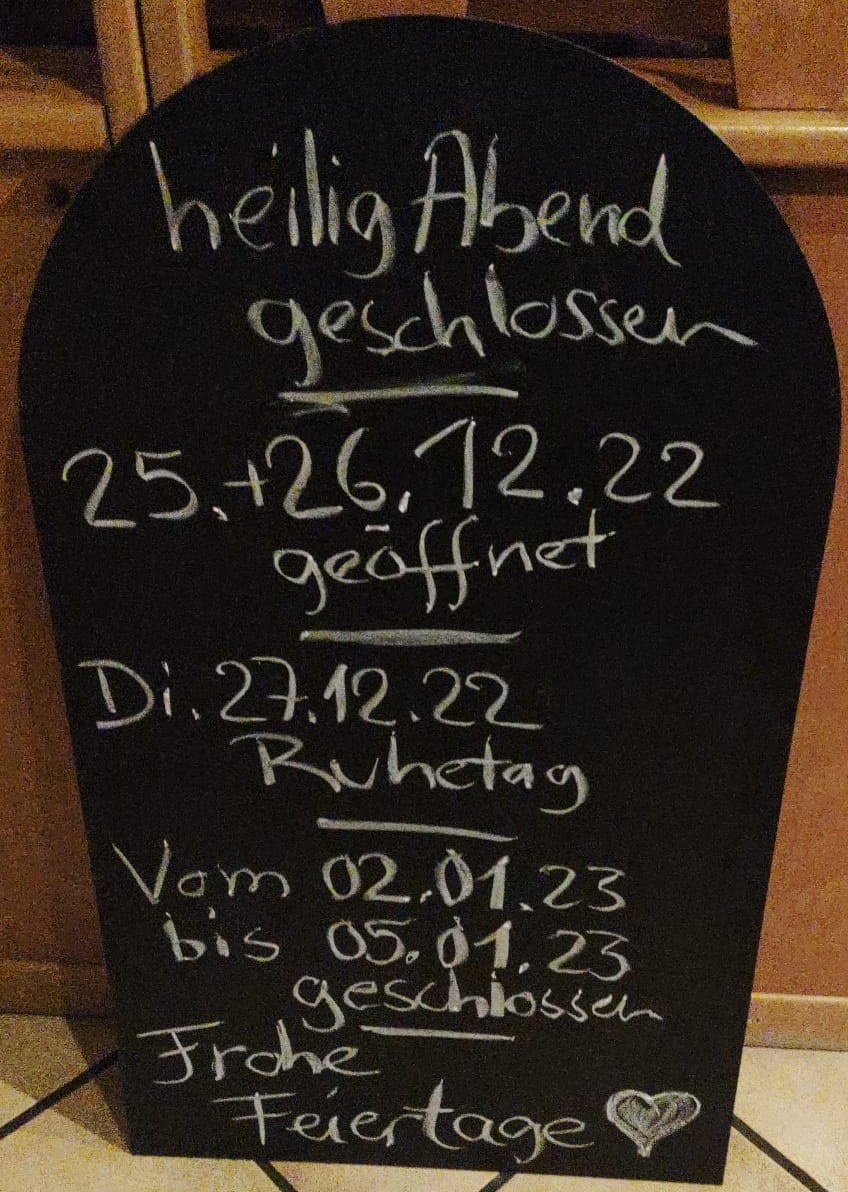 heilig Abend
geschlossen
25.+26.12.22
geöffnet
Di. 27.12.22
Ruhetag
Vom 02.01.23
bis 05.01.23
geschlossen
Frohe
Feiertage